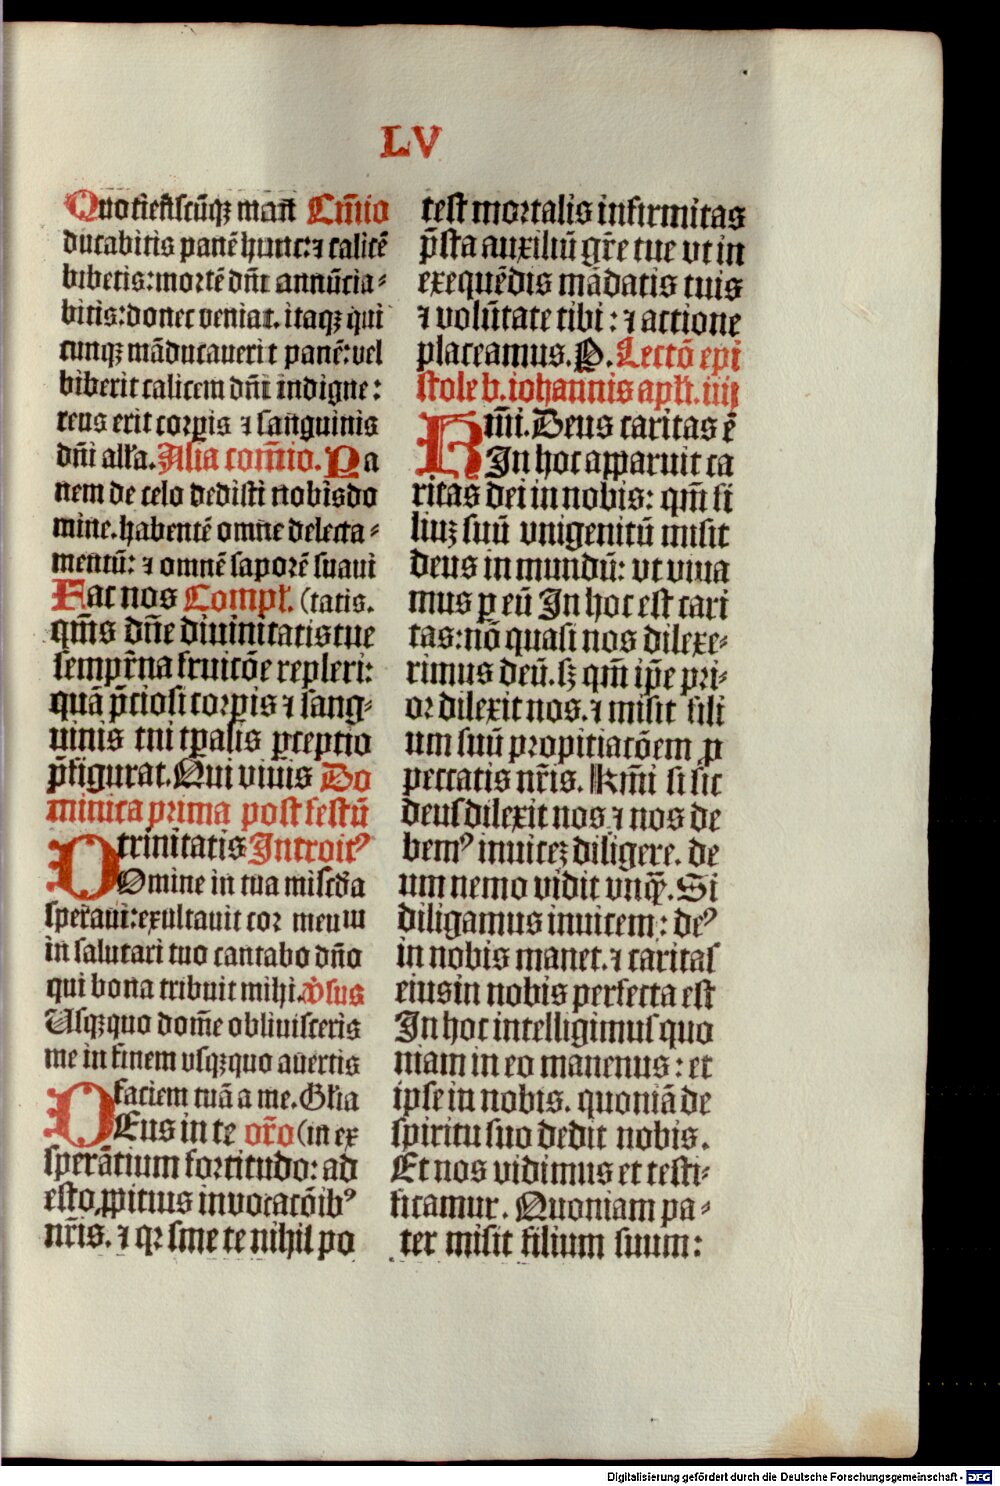 LV
Quotiẽscũqꝫ man Cõ̃io
ducabitis panẽ hunc: ⁊ calicẽ
bibetis: mortẽ dñi annũcia⸗
bitis: donec veniat. itaqꝫ qui
cunqꝫ mãducauerit panẽ: vel
biberit calicem dñi indigne:
reus erit corꝑis ⁊ sanguinis
dñi alľa. Alia com̃io. Pa
nem de celo dedisti nobis do
mine. habentẽ omne delecta⸗
mentũ: ⁊ omnẽ saporẽ suaui
Fac nos Compľ. (tatis.
qm̃s dñe diuinitatis tue
sempr̃na fruicõe repleri:
quã p̃ciosi corꝑis ⁊ sang⸗
uinis tui tꝑalis ꝑceptio
p̃figurat. Qui viuis Do
minica prima post festũ
trinitatis Introitꝰ
DOmine in tua miscd̃a
speraui: exultauit cor meum
in salutari tuo cantabo dño
qui bona tribuit mihi. v̾sus
Usqꝫquo dom̃e obliuisceris
me in finem vsqꝫquo auertis
faciem tuã a me. Gľia
DEus in te or̃o (in ex
sperãtium fortitudo: ad
esto ꝓpitius inuocacõibꝰ
nr̃is. ⁊ qꝛ sine te nihil po
test mortalis infirmitas
p̃sta auxiliũ gr̃e tue vt in
exequẽdis mãdatis tuis
⁊ volũtate tibi: ⁊ actione
placeamus. P. Lectõ epi
stole b. iohannis apľi. iiij
Kmĩ. Deus caritas ẽ
In hoc apparuit ca
ritas dei in nobis: qm̃ fi
liuꝫ suũ vnigenitũ misit
deus in mundũ: vt viua
mus ꝑ eũ In hoc est cari
tas: nõ quasi nos dilexe⸗
rimus deũ. sꝫ qm̃ ip̃e pri⸗
or dilexit nos. ⁊ misit fili
um suũ propitiacõem ꝓ
peccatis nr̃is. Kmĩ si sic
deus dilexit nos ⁊ nos de
bemꝰ inuiceꝫ diligere. de
um nemo vidit vnqꝫ̃. Si
diligamus inuicem: deꝰ
in nobis manet. ⁊ caritas
eius in nobis perfecta est
In hoc intelligimus quo
niam in eo manemus: et
ipse in nobis. quoniã de
spiritu suo dedit nobis.
Et nos vidimus et testi⸗
ficamur. Quoniam pa⸗
ter misit filium suum:
Digitalisierung gefördert durch die Deutsche Forschungsgemeinschaft - DFG